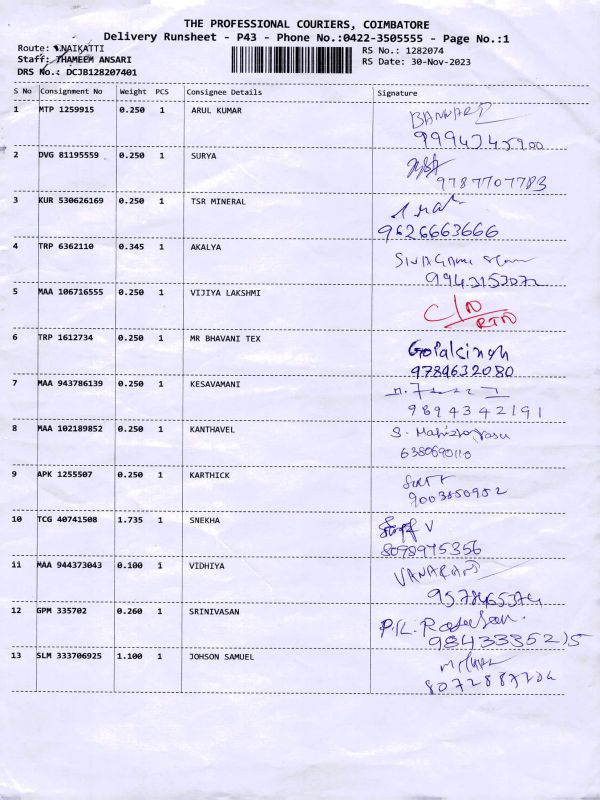 THE PROFESSIONAL COURIERS, COIMBATORE
Delivery Runsheet - P43 - Phone No.:0422-3505555 - Page No.:1
Route: NAIKATTI RS No.: 1282074
Staff: THAMEEM ANSARI RS Date: 30-Nov-2023
DRS No.: DCJB128207401
S No Consignment No Weight PCS Consignee Details Signature
1 MTP 1259915 0.250 1 ARUL KUMAR
2 DVG 81195559 0.250 1 SURYA
9787707783
3 KUR 530626169 0.250 1 TSR MINERAL
9626663666
4 TRP 6362110 0.345 1 AKALYA
5 MAA 106716555 0.250 1 VIJIYA LAKSHMI
RTN
6 TRP 1612734 0.250 1 MR BHAVANI TEX
Gopalsingh
9789632080
7 MAA 943786139 0.250 1 KESAVAMANI
9894342191
8 MAA 102189852 0.250 1 KANTHAVEL
6380690110
9 APK 1255507 0.250 1 KARTHICK
9003850952
10 TCG 40741508 1.735 1 SNEKHA
8098975356
11 MAA 944373043 0.100 1 VIDHIYA
12 GPM 335702 0.260 1 SRINIVASAN
9843335215
13 SLM 333706925 1.100 1 JOHSON SAMUEL